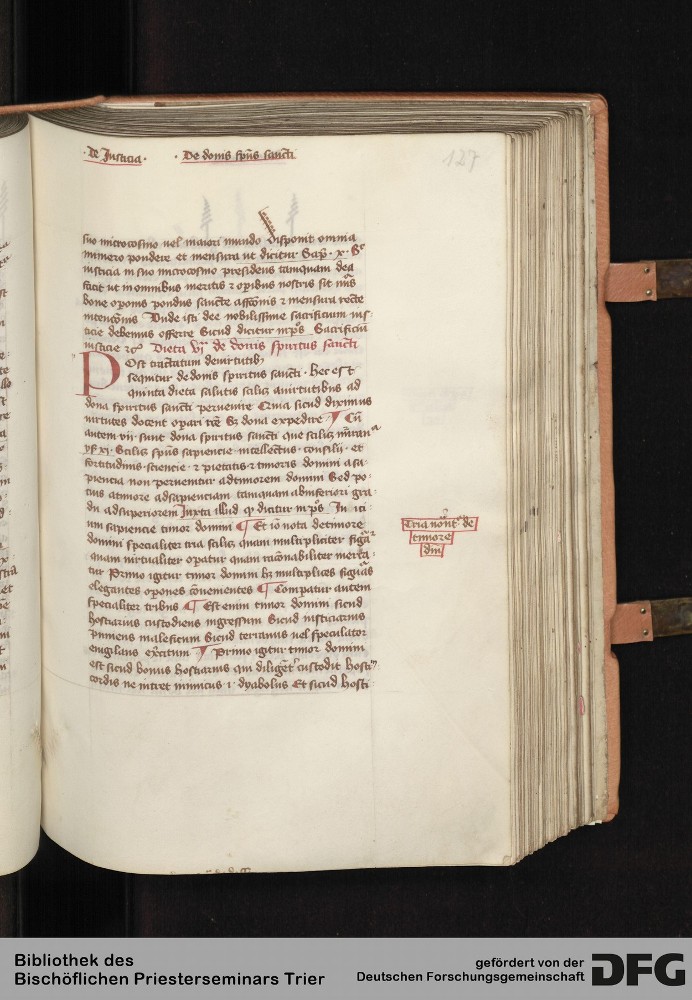 ·De Justicia· · De donis spūs sancti
127
suo microcosmo vel maiori mundo disponit omnia
numero pondere et mensura ut dicitur Sap̄
iusticia in suo microcosmo presidens tamquam dea
facit ut in omnibus meritis et operibus nostris sit
bone pondus sancte et mensura recte
intencōnis Unde isti dee nobilissime sacrificium ius-
ticie debemus offerre Sicud dicitur in ps̄ Sacrificiū
iusticie Dieta de donis spiritus sancti
Post tractatum de virtutib
sequitur de donis spiritus sancti · Hec est
quinta dieta salutis scilicet a virtutibus ad
dona spiritus sancti pervenire Cenia sicud diximus
virtutes docent opari Sz dona expedire ¶ Cū
autem vij sunt dona spiritus sancti que scilicet
xi · Scilicet spūs sapiencie intellectus · consilii · et
fortitudinis · sciencie · et pietatis et timoris domini a sa-
piencia non pervenitur ad timorem domini Sed po-
cius a timore ad sapienciam tamquam ab inferiori gra-
du ad superiorem Juxta illud dicitur in ps̄ In ici-
um sapiencie timor domini ¶ Et iō nota de timore
domini specialiter tria scilicet quam multipliciter
quam virtualiter opatur quam racōnabiliter merca-
tur Primo igitur timor domini hz multiplices
elegantes convenientes ¶ Comparatur autem
specialiter tribus ¶ Est enim timor domini sicud
hostiarius custodiens ingressum Sicud iusticiarius
puniens maleficium Sicud vel speculator
evigilans exercitum ¶ Primo igitur timor domini
est sicud bonus hostiarius qui custodit
cordis ne intret inimicus · i · dyabolus Et sicud hosti-
Tria de
timore
dnī
Bibliothek des
Bischöflichen Priesterseminars Trier
gefördert von der
Deutschen Forschungsgemeinschaft
DFG